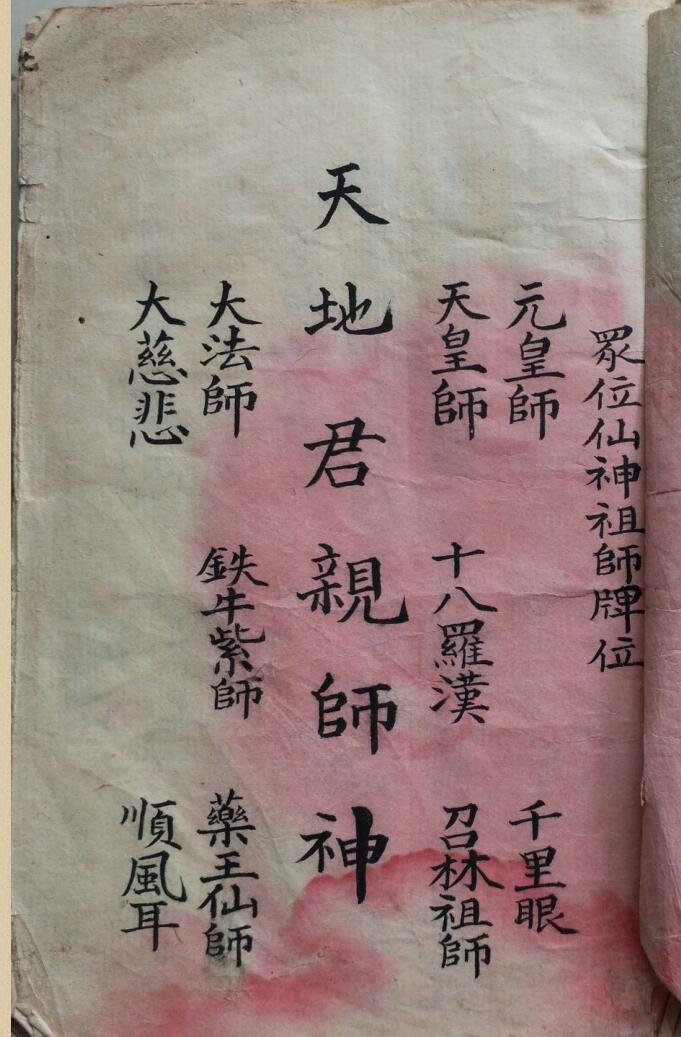 眾位仙神祖師牌位
元皇師
千里眼
天皇師
十八羅漢
召林祖師
天地君親師神
大法師
鉄牛紫師
藥王仙師
大慈悲
順風耳